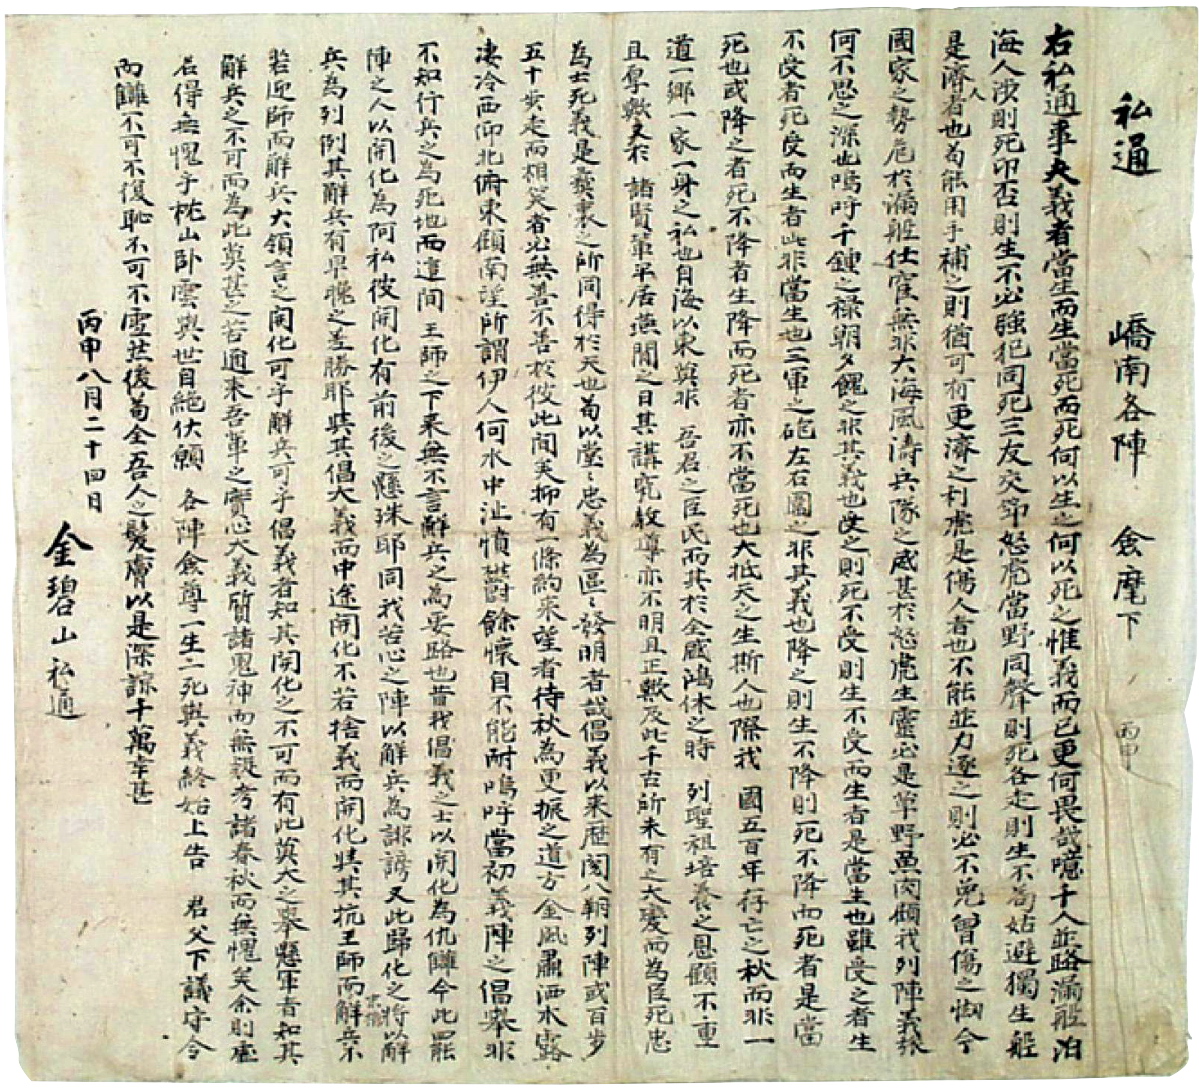 私通　嶠南各陣　僉麾下　丙申
右私通事夫義者當生而生當死而死何以生之何以死之惟義而已更何畏哉噫千人並路漏船泊
海人汝則死卬否則生不必強犯同死三友交節怒虎當野同聲則死各走則生不為姑避獨生船
是濟人者也苟能用手補之則猶可有更濟之利虎是傷人者也不能並力逐之則必不免曾傷之㘛今
國家之勢危於漏船仕宦無非大海風濤兵隊之威甚於怒虎生靈必是草野魚肉顧我列陣義旅
何不思之深也嗚呼千鍾之祿朝夕餽之非其義也受之則死不受則生不受而生者是當生也雖受之者生
不受者死受而生者此非當生也三軍之砲左右圍之非其義也降之則生不降則死不降而死者是當
死也或降之者死不降者生降而死者亦不當死也大抵天之生斯人也際我　國五百年存亡之秋而非一
道一鄉一家一身之私也自海以東莫非　吾君之臣民而其於全盛鴻休之時　列聖祖培養之恩顧不重
且厚歟又於　諸賢輩平居燕閒之日其講究教導亦不明且正歟及此千古所未有之大變而為臣死忠
為士死義是彝衷之所同得於天也苟以堂〻忠義為區〻發明者哉倡義以來歷閱八朔列陣或百步
五十步走而相笑者必無善不善於彼此間矣抑有一條約來望者待秋為更振之道方金風肅洒水露
凄冷西仰北俯東顧南望所謂伊人何水中沚憤鬱餘懷自不能耐嗚呼當初義陣之倡舉非
不知行兵之為死地而這間　王師之下來無不言解兵之為要路也昔我倡義之士以開化為仇讎今此罷
陣之人以開化為阿私彼開化有前後之懸殊耶同我苦心之陣以解兵為誹謗又此歸化之將以解
兵為列例其解兵有早晚之差勝耶與其倡大義而中途開化不若捨義而開化與其抗王師而解兵不
若迎師而解兵大領言之開化可乎解兵可乎倡義者知其開化之不可而有此莫大之舉懸軍者知其
解兵之不可而為此莫甚之苦通來吾輩之實心大義質諸鬼神而無疑考諸春秋而無懼矣余則處
若得無愧乎枕山臥雲與世自絕伏願　各陣僉尊一生一死與義終始上告　君父下議守令
而讎不可不復恥不可不雪然後苟全吾人之髮膚以是深諒千萬幸甚
丙申八月二十四日
金碧山私通